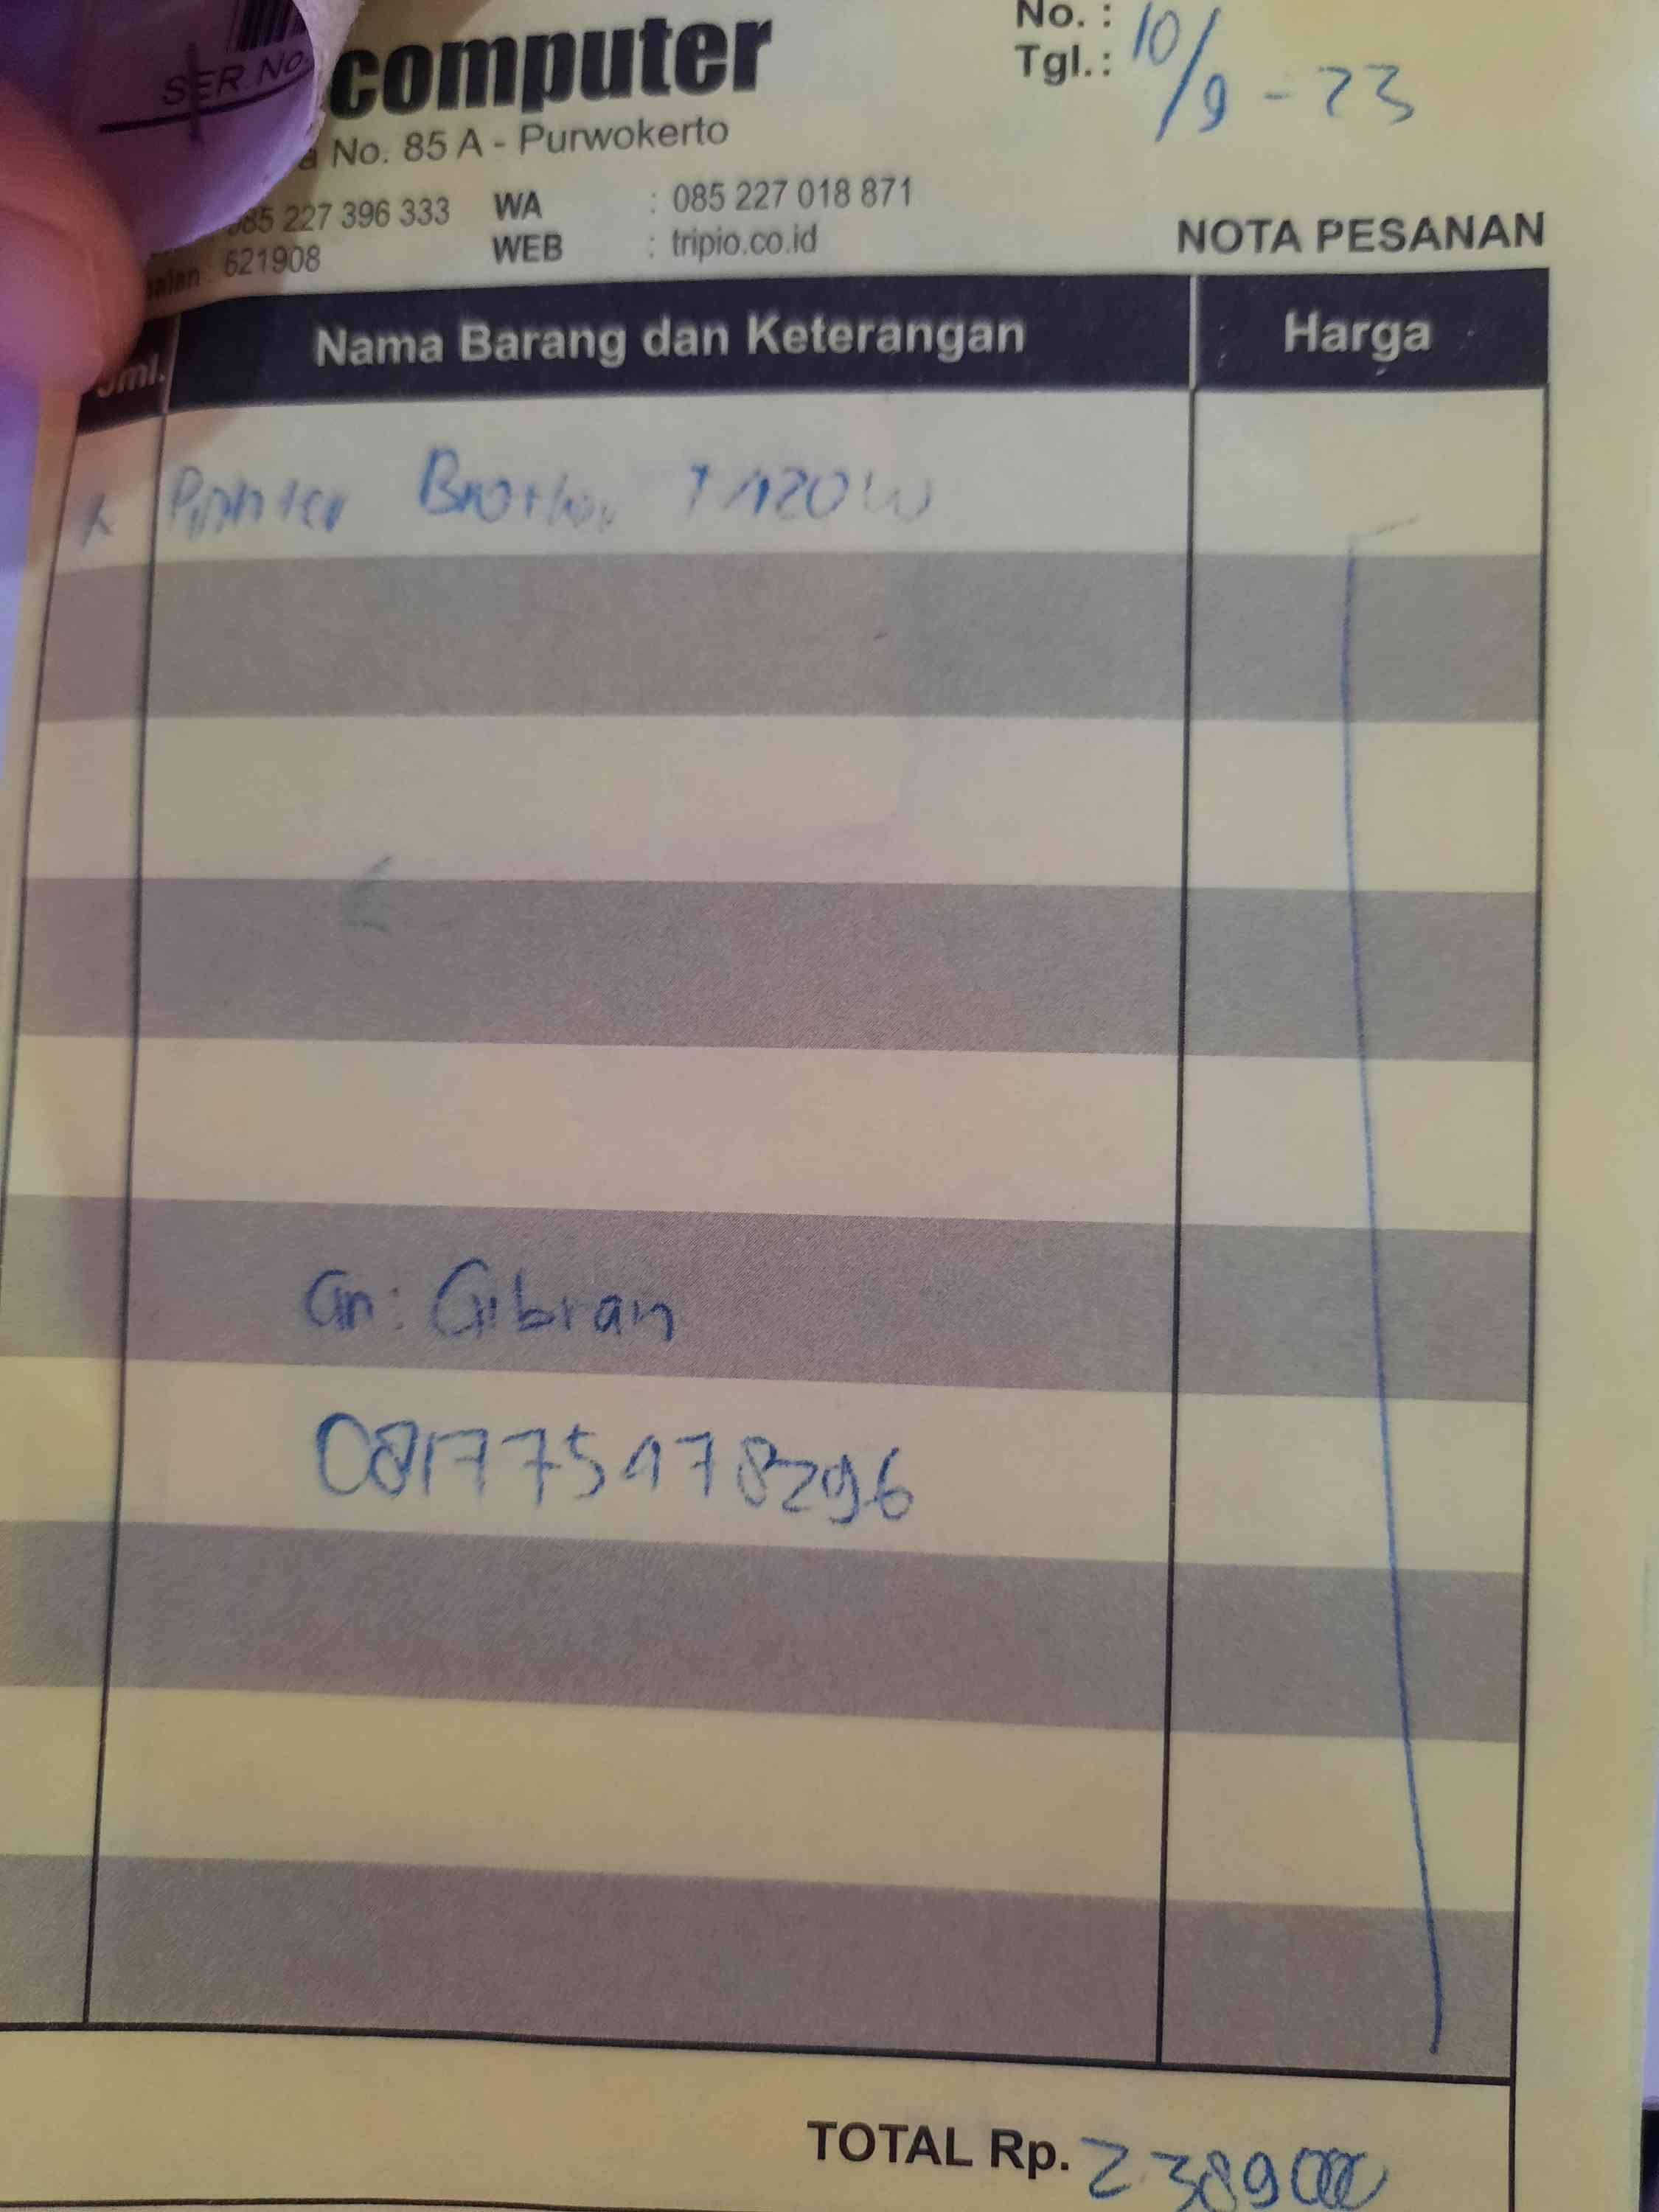 SER.No.
computer
No. :
Tgl.: 10/9-23
No. 85 A - Purwokerto
085 227 396 333 WA : 085 227 018 871
621908 WEB : tripio.co.id
NOTA PESANAN
Jml. Nama Barang dan Keterangan Harga
Printer Brother T420W
an: Gibran
081775478296
TOTAL Rp. 2389000